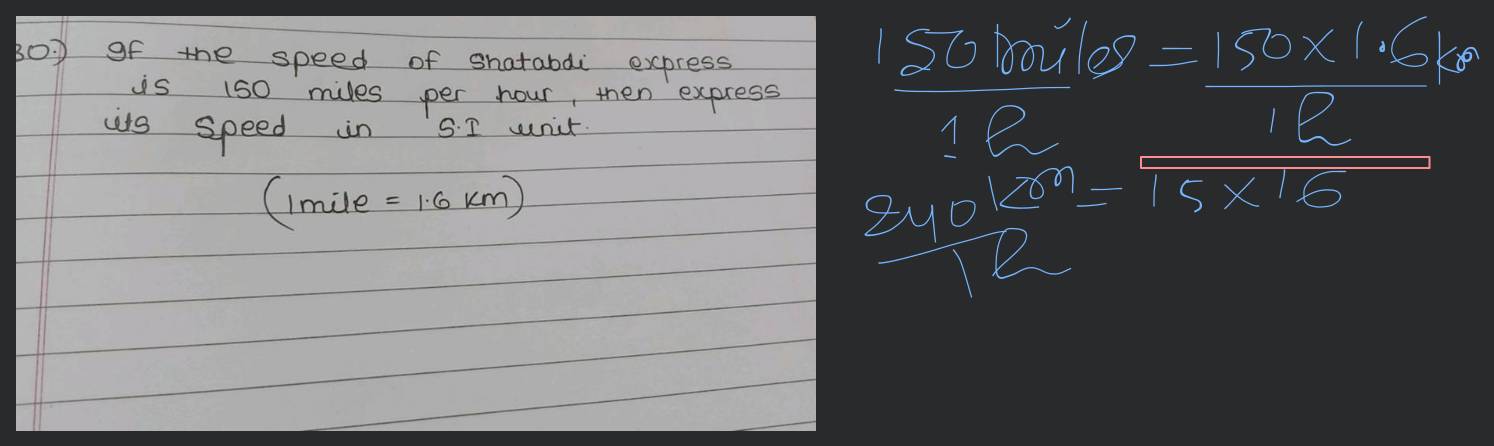 30.) If the speed of Shatabdi express
is 150 miles per hour, then express
its speed in S.I unit.
(1 mile = 1.6 km)
150 miles = 150 x 1.6 km
1 h 1 h
240 km = 15 x 16
1 h